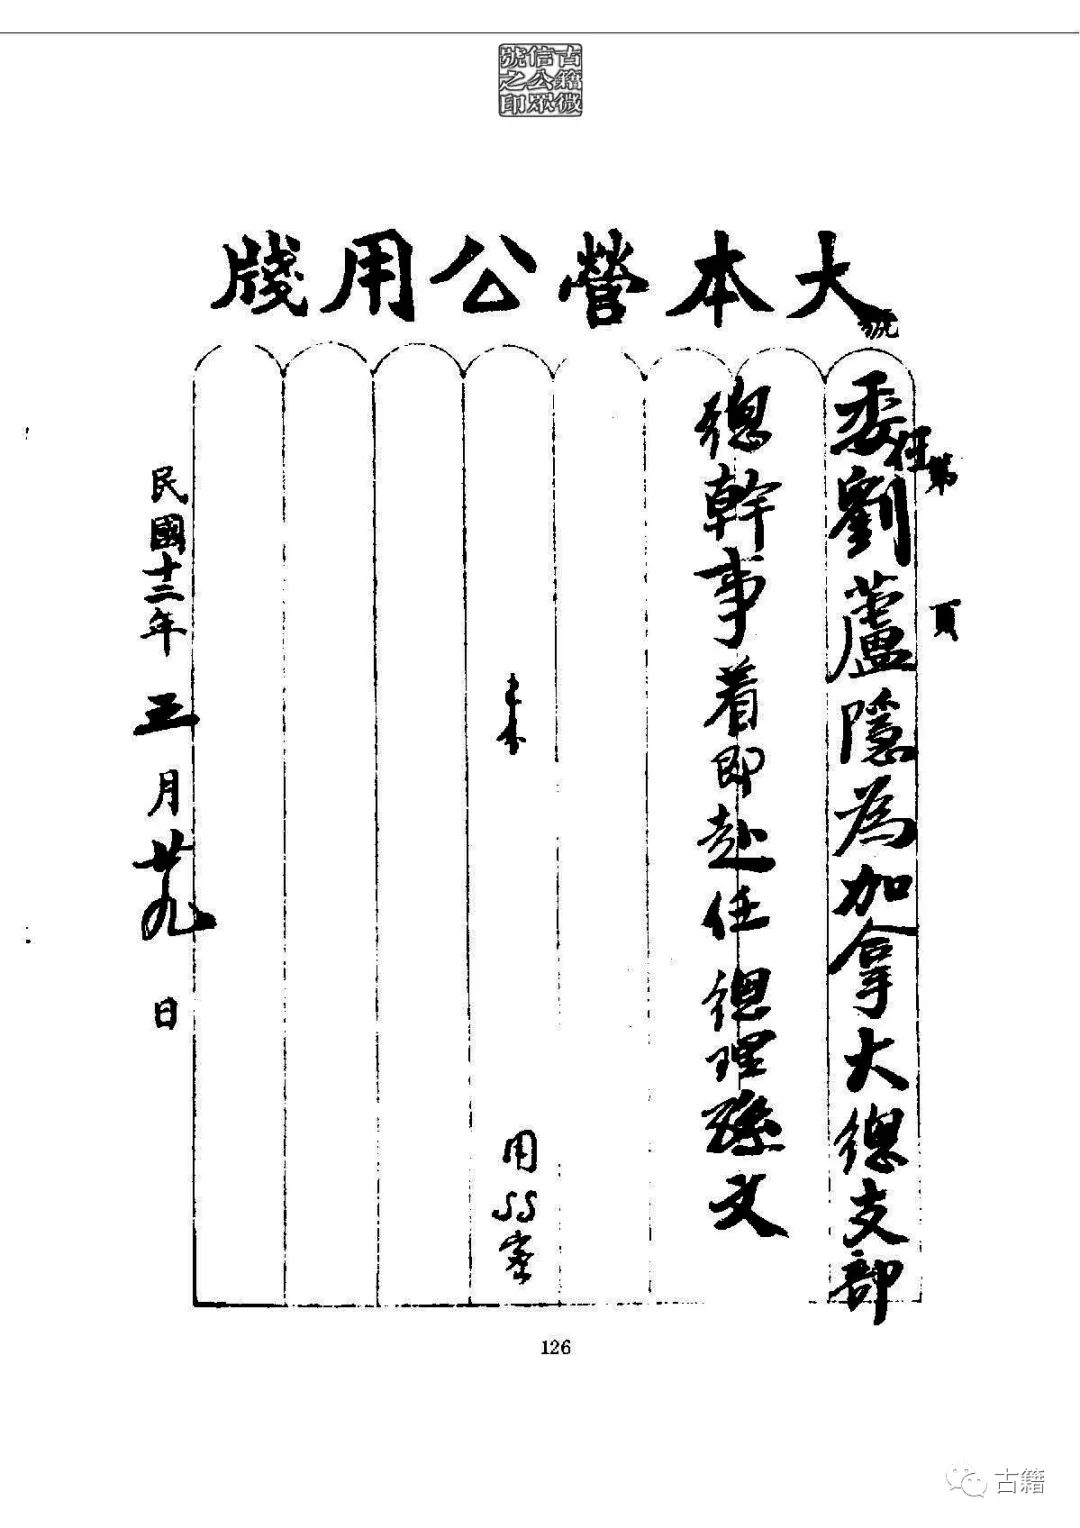 古籍微
信公眾
號之印
大本營公用牋
號
第 頁
委任劉蘆隱為加拿大總支部
總幹事着即赴任 總理孫文
用SS密
民國十二年 三月廿九日
126
古籍